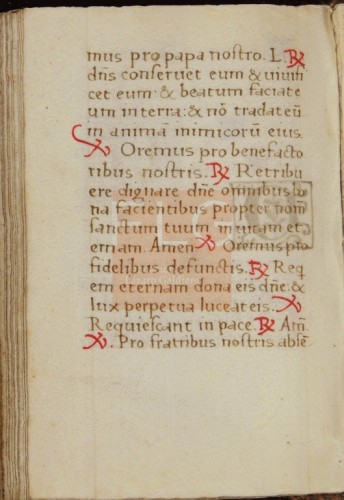 mus pro papa nostro. L. ℟
dñs conseruet eum & uiuifi
cet eum & beatum faciat e
um in terra: & nõ tradat eũ
in anima inimicorũ eius.
℣ Oremus pro benefacto
ribus nostris. ℟ Retribu
ere dignare dñe omnibus bo
na facientibus propter nom̃
sanctum tuum in uitam et
ernam. Amen ℣ Oremus pro
fidelibus defunctis. ℟ Requi
em eternam dona eis dñe: &
lux perpetua luceat eis. ℣
Requiescant in pace. ℟ Am̃.
℣. Pro fratribus nostris absẽ